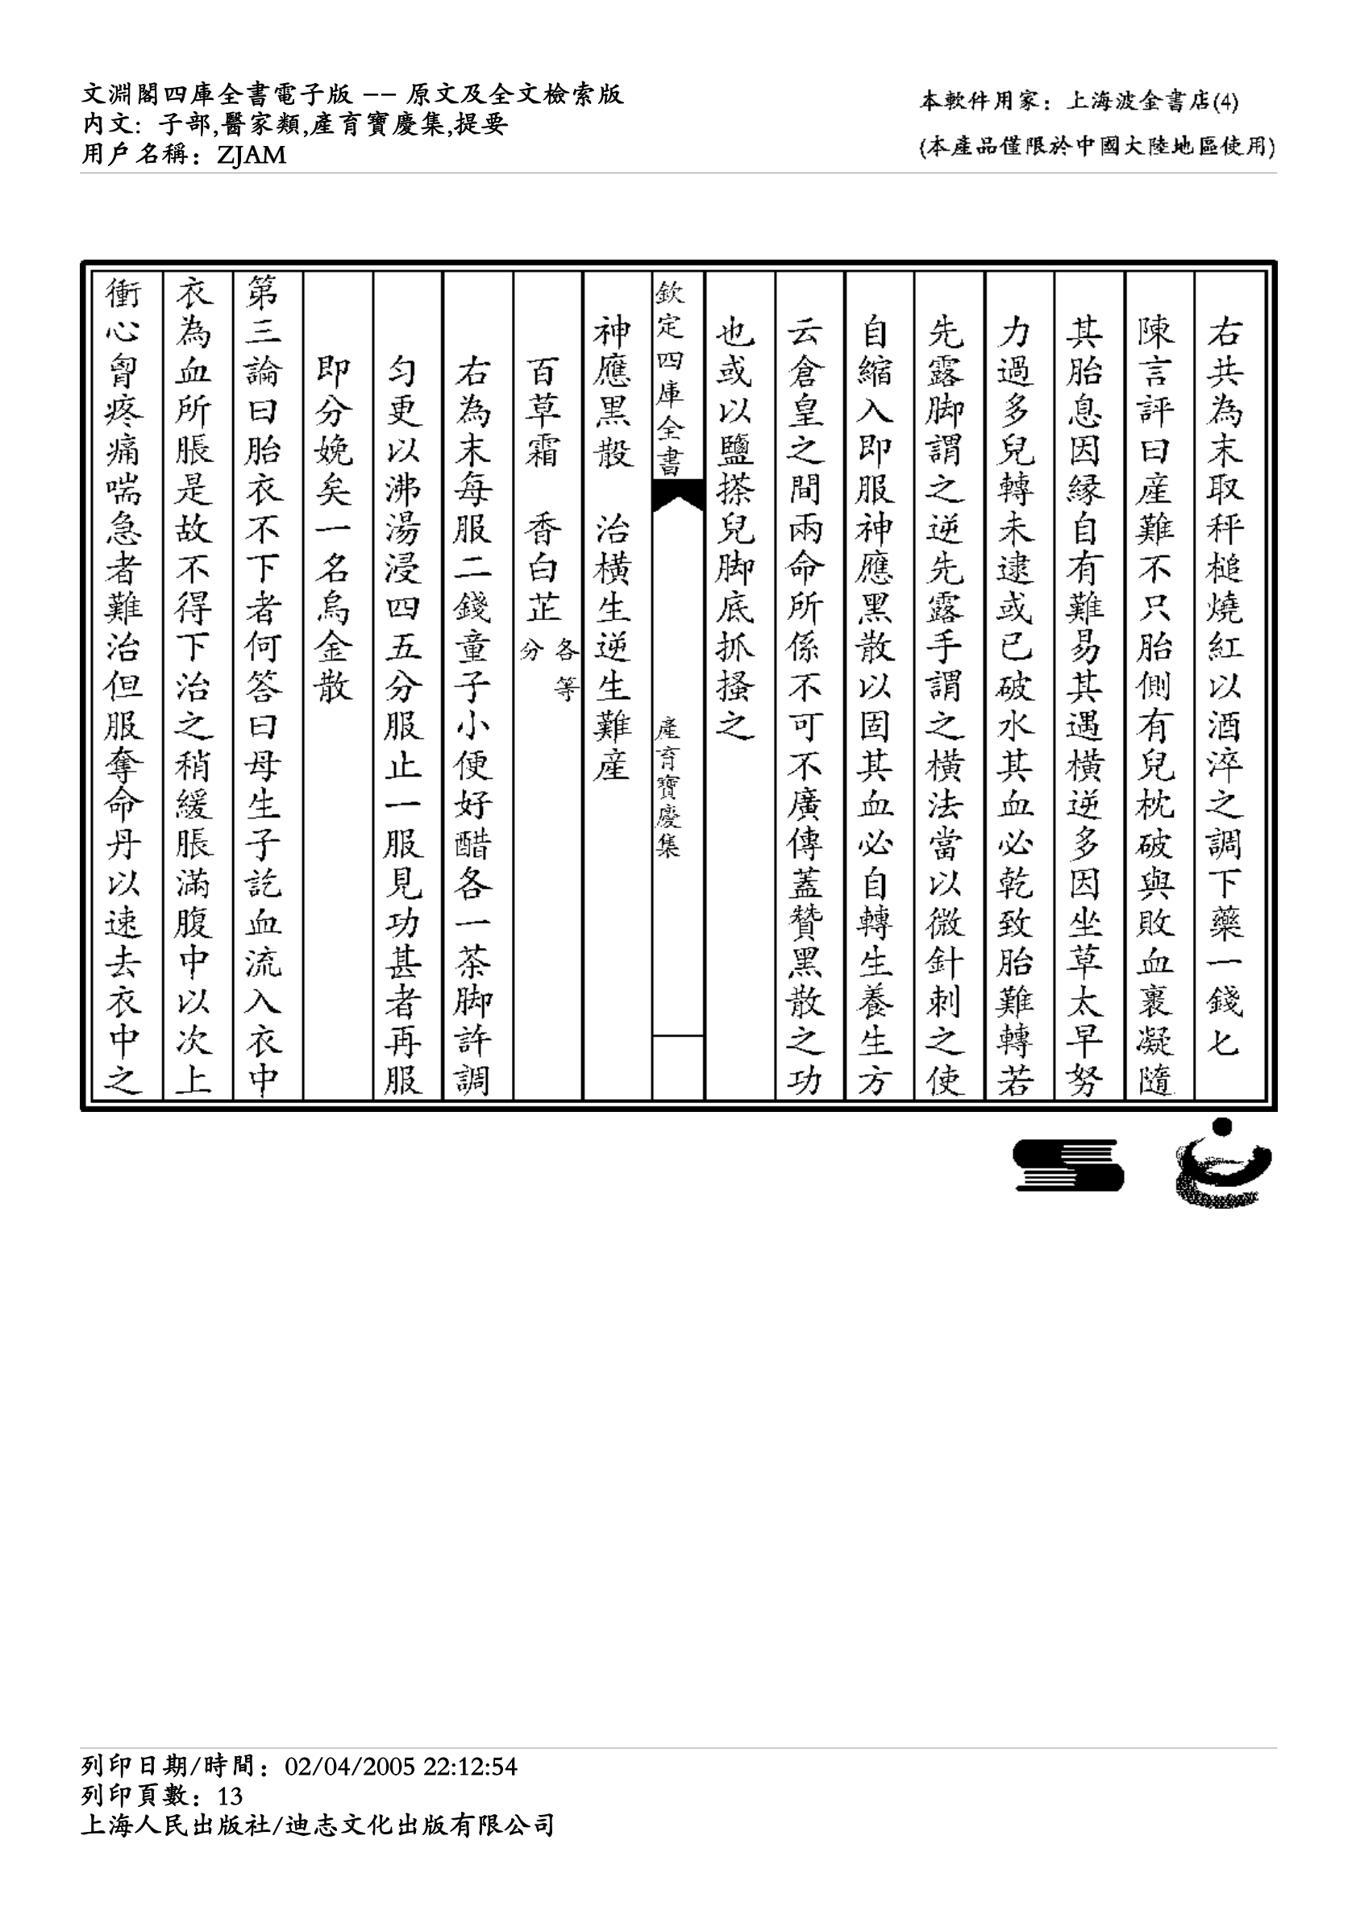 文淵閣四庫全書電子版 -- 原文及全文檢索版
内文: 子部,醫家類,產育寶慶集,提要
用戶名稱：ZJAM
本軟件用家：上海波金書店(4)
(本產品僅限於中國大陸地區使用)
右共為末取秤槌燒紅以酒淬之調下藥一錢匕
陳言評曰産難不只胎側有兒枕破與敗血裹凝隨
其胎息因縁自有難易其遇橫逆多因坐草太早努
力過多兒轉未逮或已破水其血必乾致胎難轉若
先露脚謂之逆先露手謂之橫法當以微針刺之使
自縮入即服神應黑散以固其血必自轉生養生方
云倉皇之間兩命所係不可不廣傳蓋贊黑散之功
也或以鹽搽兒脚底抓搔之
欽定四庫全書
產育寶慶集
神應黑散 治橫生逆生難産
百草霜 香白芷各等分
右為末每服二錢童子小便好醋各一茶脚許調
匀更以沸湯浸四五分服止一服見功甚者再服
即分娩矣一名烏金散
第三論曰胎衣不下者何答曰母生子訖血流入衣中
衣為血所脹是故不得下治之稍緩脹滿腹中以次上
衝心胷疼痛喘急者難治但服奪命丹以速去衣中之
列印日期/時間：02/04/2005 22:12:54
列印頁數：13
上海人民出版社/迪志文化出版有限公司